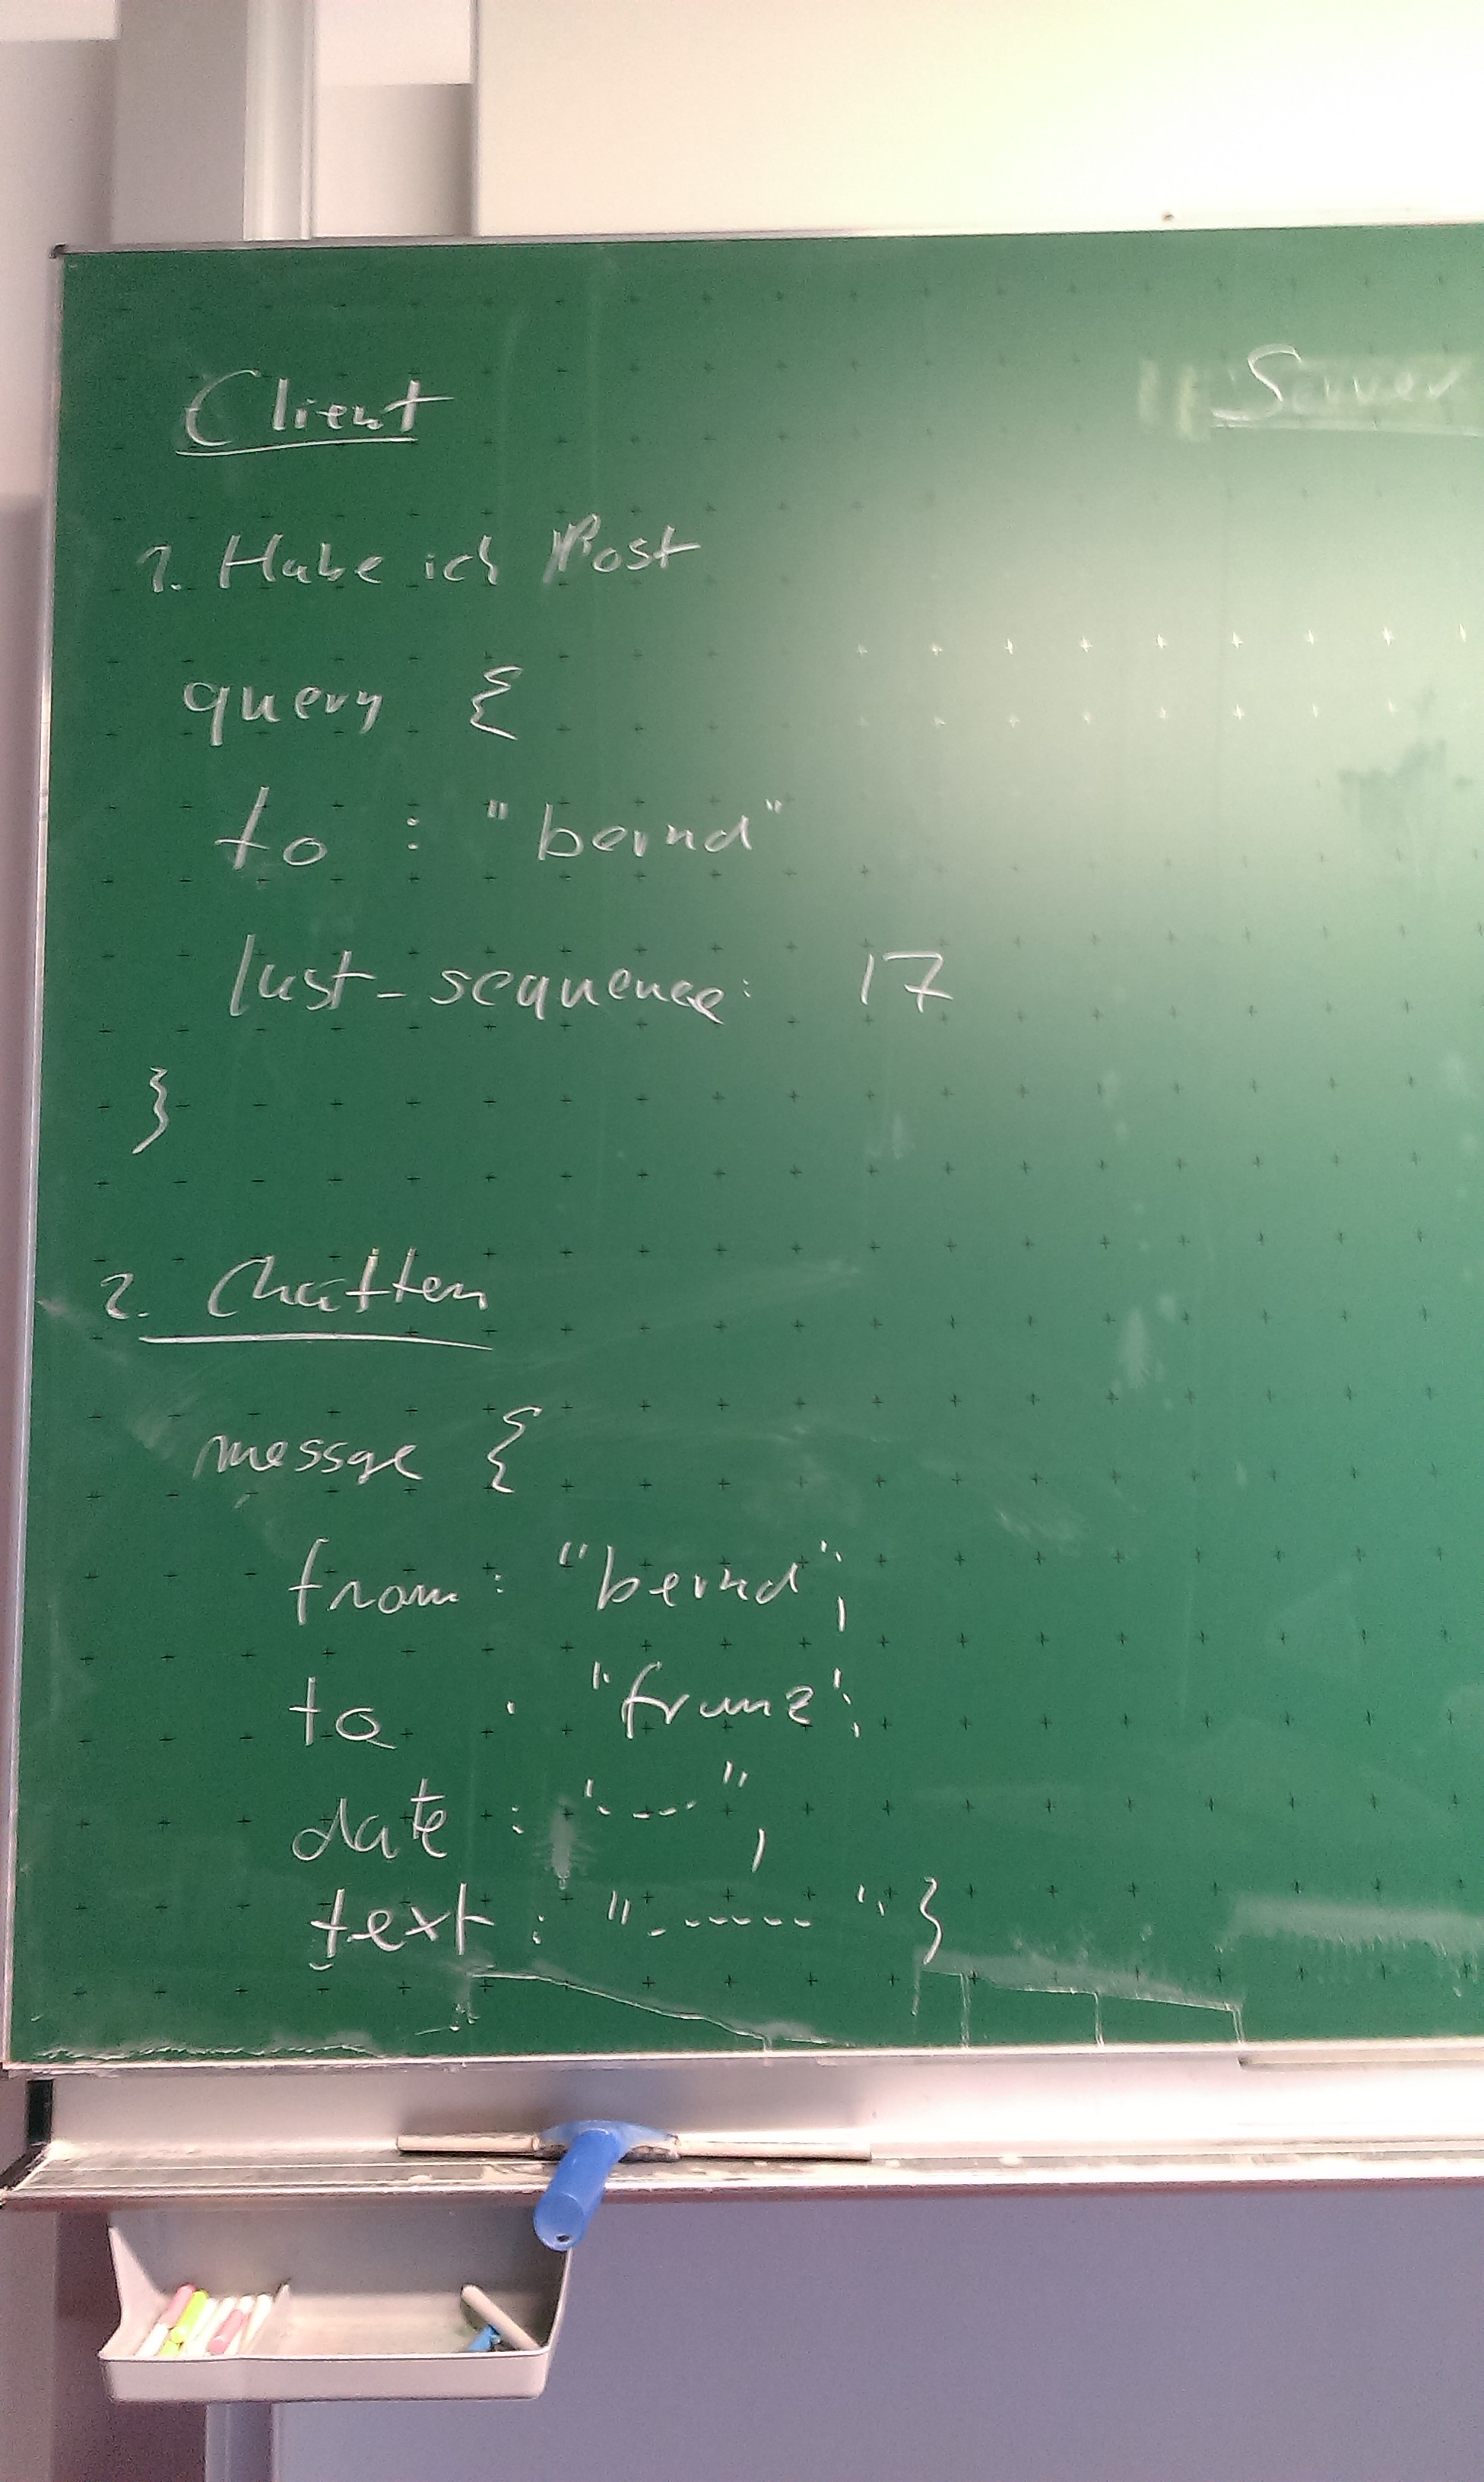 Client
Server
1. Habe ich Post
query {
to : "bernd"
last_sequence: 17
}
2. Chatten
messge {
from : "bernd",
to : "franz",
date : "----",
text : "------" }